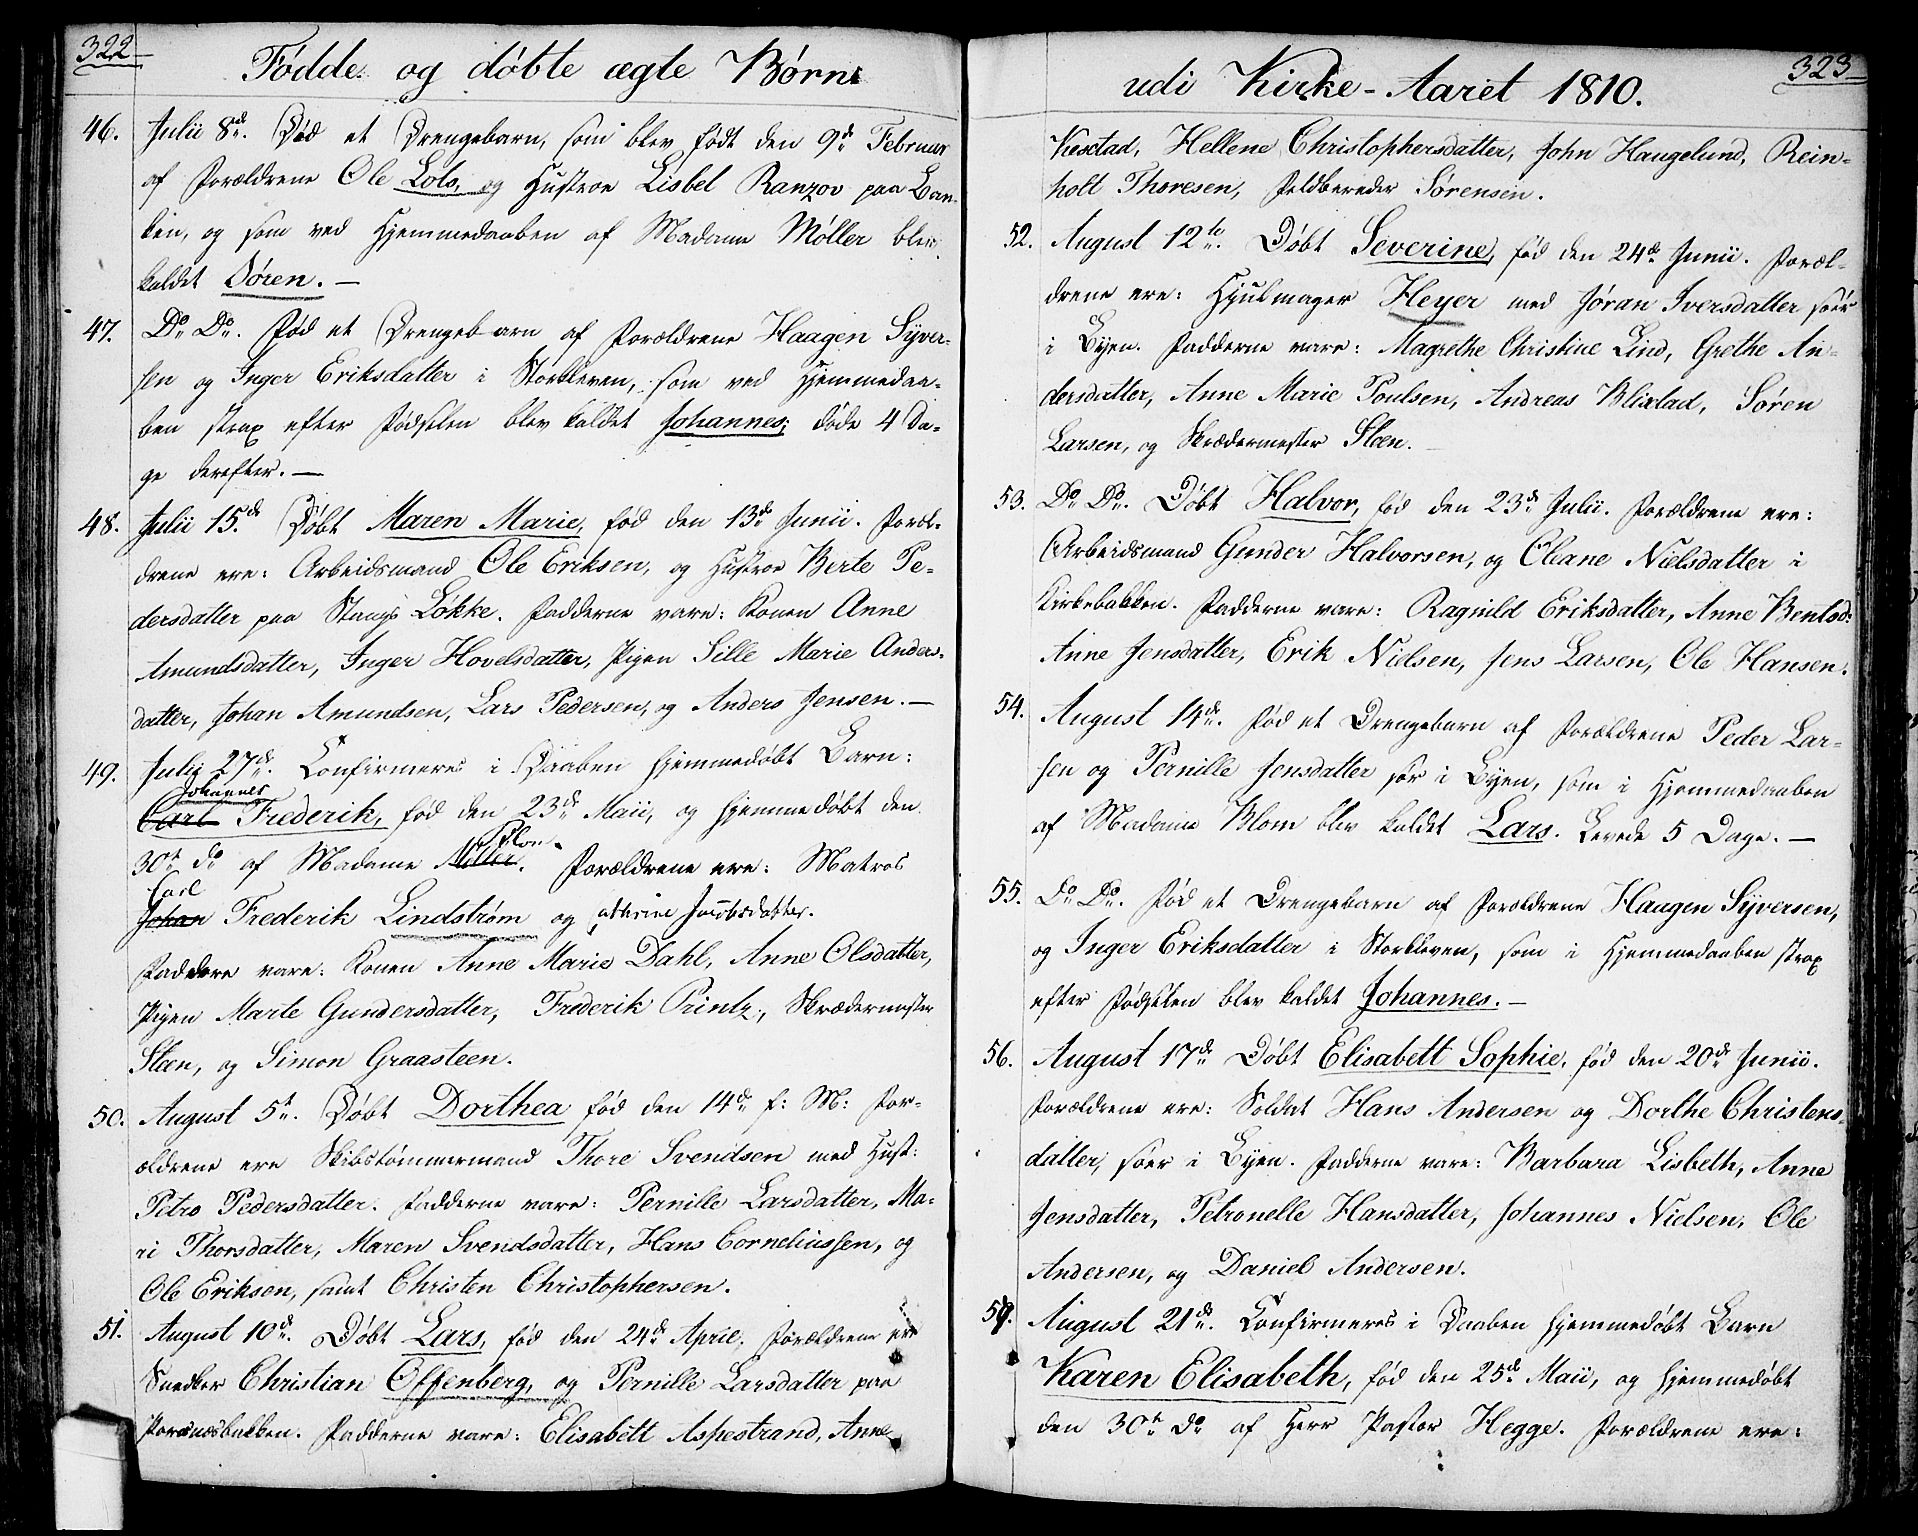 322
Fødde og døbte ægte Børn
46. Julii 8de. Død et Drengebarn, som blev født den 9de Februar
af Forældrene Ole Lols, og Hustroe Lisbet Ranzov paa Ban-
ken, og som ved Hjemmedaaben af Madame Møller blev
kaldet Søren. —
47. Do Do. Fød et Drengebarn af Forældrene Haagen Syver-
sen og Inger Eriksdatter i Storkleven, som ved Hjemmedaa-
ben strax efter Fødselen blev kaldet Johannes; døde 4 Da-
ge derefter. —
48. Julii 15de Døbt Maren Marie, fød den 13de Junii. Foræl-
drene ere: Arbeidsmand Ole Eriksen, og Hustroe Berte Pe-
dersdatter paa Stangs Løkke. Fadderne vare: Konen Anne
Amundsdatter, Inger Hovelsdatter, Pigen Sille Marie Anders-
datter, Johan Amundsen, Lars Pedersen, og Anders Jensen. —
49. Julii 27de. Confirmeres i Daaben hjemmedøbt Barn:
Johannes
Carl Frederik, fød den 23de Maii, og hjemmedøbt den
Blom
30te do af Madame Møller. Forældrene ere: Matros
Carl
Johan Frederik Lindstrøm og Cathrine Jacobsdatter.
Faddere vare: Konen Anne Marie Dahl, Anne Olsdatter,
Pigen Marte Gundersdatter, Frederik Printz, Skrædermester
Steen, og Simon Graasteen.
50. August 5te. Døbt Dorthea fød den 14de f: M: For-
ældrene ere Skibstømmermand Thore Svendsen med Hust:
Petro Pedersdatter. Fadderne vare: Pernille Larsdatter, Ma-
ri Thorsdatter, Maren Svendsdatter, Hans Corneliussen, og
Ole Eriksen, samt Christen Christophersen.
51. August 10de. Døbt Lars, fød den 24de April, Forældrene ere
Snedker Christian Offenberg, og Pernille Larsdatter paa
Porsnæsbakken. Fadderne vare: Elisabett Aspestrand, Anne
323
udi Kirke-Aaret 1810.
Kiestad, Hellene Christophersdatter, John Haugelund, Rein-
holt Thoresen, Feldbereder Sørensen.
52. August 12te. Døbt Severine, fød den 24de Junii. Foræl-
drene ere: Hjulmager Heyer med Jøran Iversdatter sør
i Byen. Fadderne vare: Magrethe Christine Lind, Grethe An-
dersdatter, Anne Marie Poulsen, Andreas Blixlad, Søren
Larsen, og Skrædermester Steen.
53. Do Do. Døbt Halvor, fød den 23de Julii. Forældrene ere:
Arbeidsmand Gunder Halvorsen, og Oleane Nielsdatter i
Kirkebakken. Fadderne vare: Ragnild Eriksdatter, Anne Bentsd:
Anne Jensdatter, Erik Nielsen, Jens Larsen, Ole Hansen.
54. August 14de. Fød et Drengebarn af Forældrene Peder Lar-
sen og Pernille Jensdatter sør i Byen, som i Hjemmedaaben
af Madame Blom blev kaldet Lars. Levede 5 Dage. —
55. Do Do. Fød et Drengebarn af Forældrene Haagen Syversen,
og Inger Eriksdatter i Storkleven, som i Hjemmedaaben strax
efter Fødselen blev kaldet Johannes. —
56. August 17de Døbt Elisabett Sophie, fød den 20de Junii.
Forældrene ere: Soldat Hans Andersen og Dorthe Christens-
datter, søer i Byen. Fadderne vare: Barbara Lisbeth, Anne
Jensdatter, Petronelle Hansdatter, Johannes Nielsen, Ole
Andersen, og Daniel Andersen.
57. August 21de. Confirmeres i Daaben hjemmedøbt Barn
Karen Elisabeth, fød den 25de Maii, og hjemmedøbt
den 30te do af Herr Pastor Hegge. Forældrene ere: